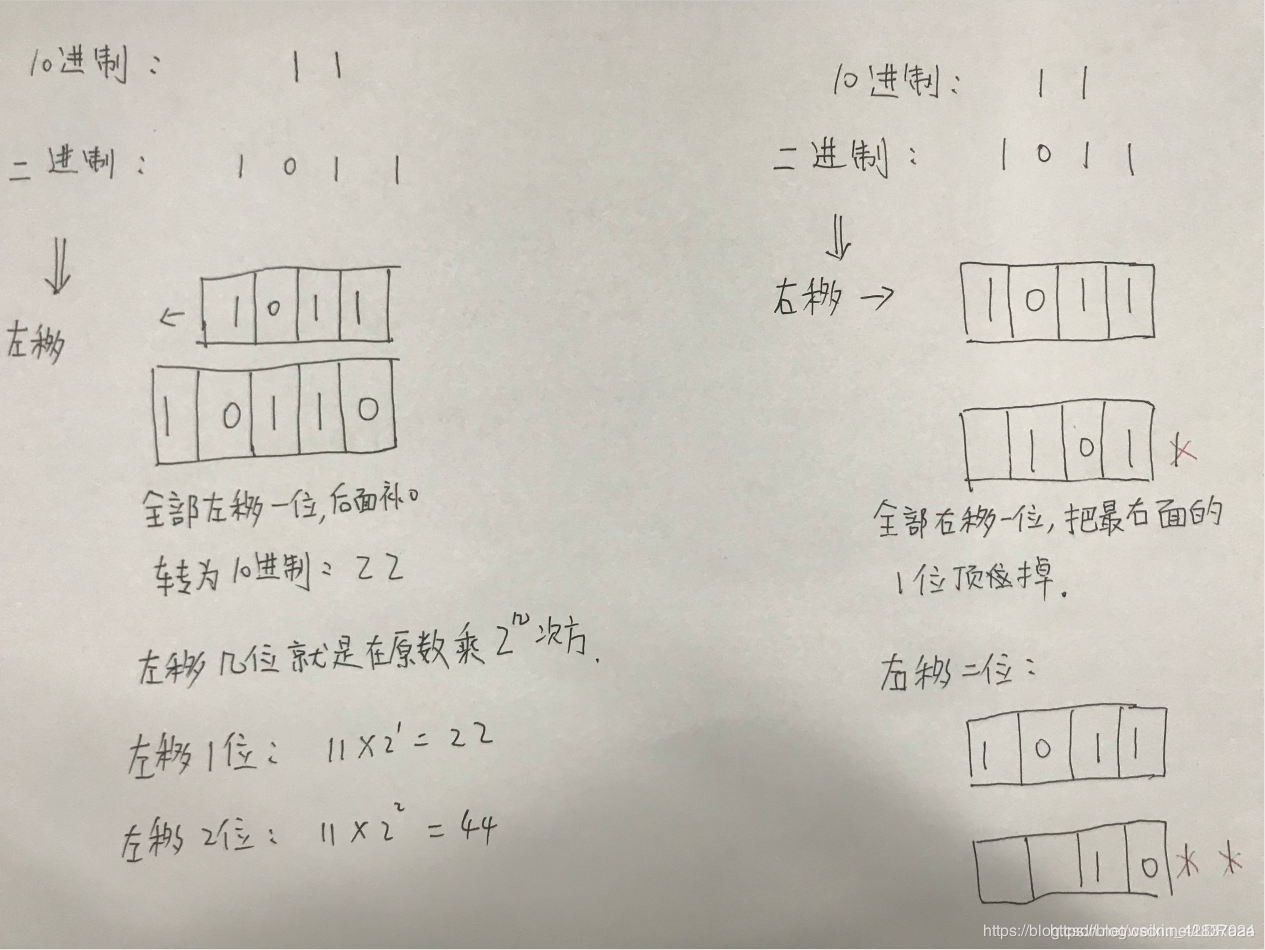 10进制： 1 1
二进制： 1 0 1 1
左移 ← 1 0 1 1
1 0 1 1 0
全部左移一位,后面补0
转为10进制：22
左移几位就是在原数乘2ⁿ次方.
左移1位： 11×2¹=22
左移2位： 11×2²=44
10进制： 1 1
二进制： 1 0 1 1
右移 → 1 0 1 1
1 0 1 ×
全部右移一位,把最右面的
1位顶掉.
右移二位：
1 0 1 1
1 0 × ×